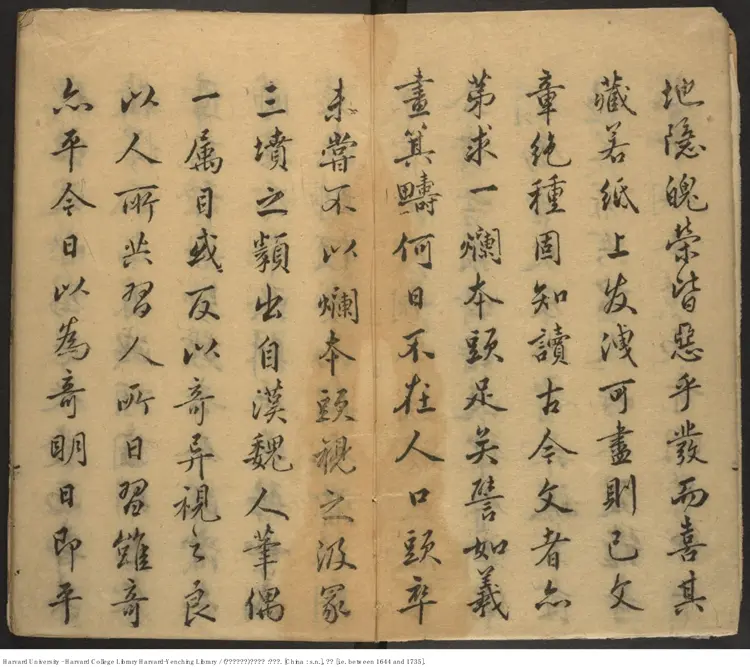 地隐魄榮皆惡乎發而喜其
藏若紙上发洩可盡則已文
章绝種固知讀古今文者亦
第求一爛本頭足矣譬如羲
畫箕疇何日不在人口頭卒
未嘗不以爛本頭視之汲冢
三墳之類出自漢魏人筆偶
一属目或反以奇异視之良
以人所共習人所日習雖奇
亦平今日以為奇明日即平
Harvard University - Harvard College Library Harvard-Yenching Library / (??????)???? :???. [China : s.n.], ?? [i.e. between 1644 and 1735].